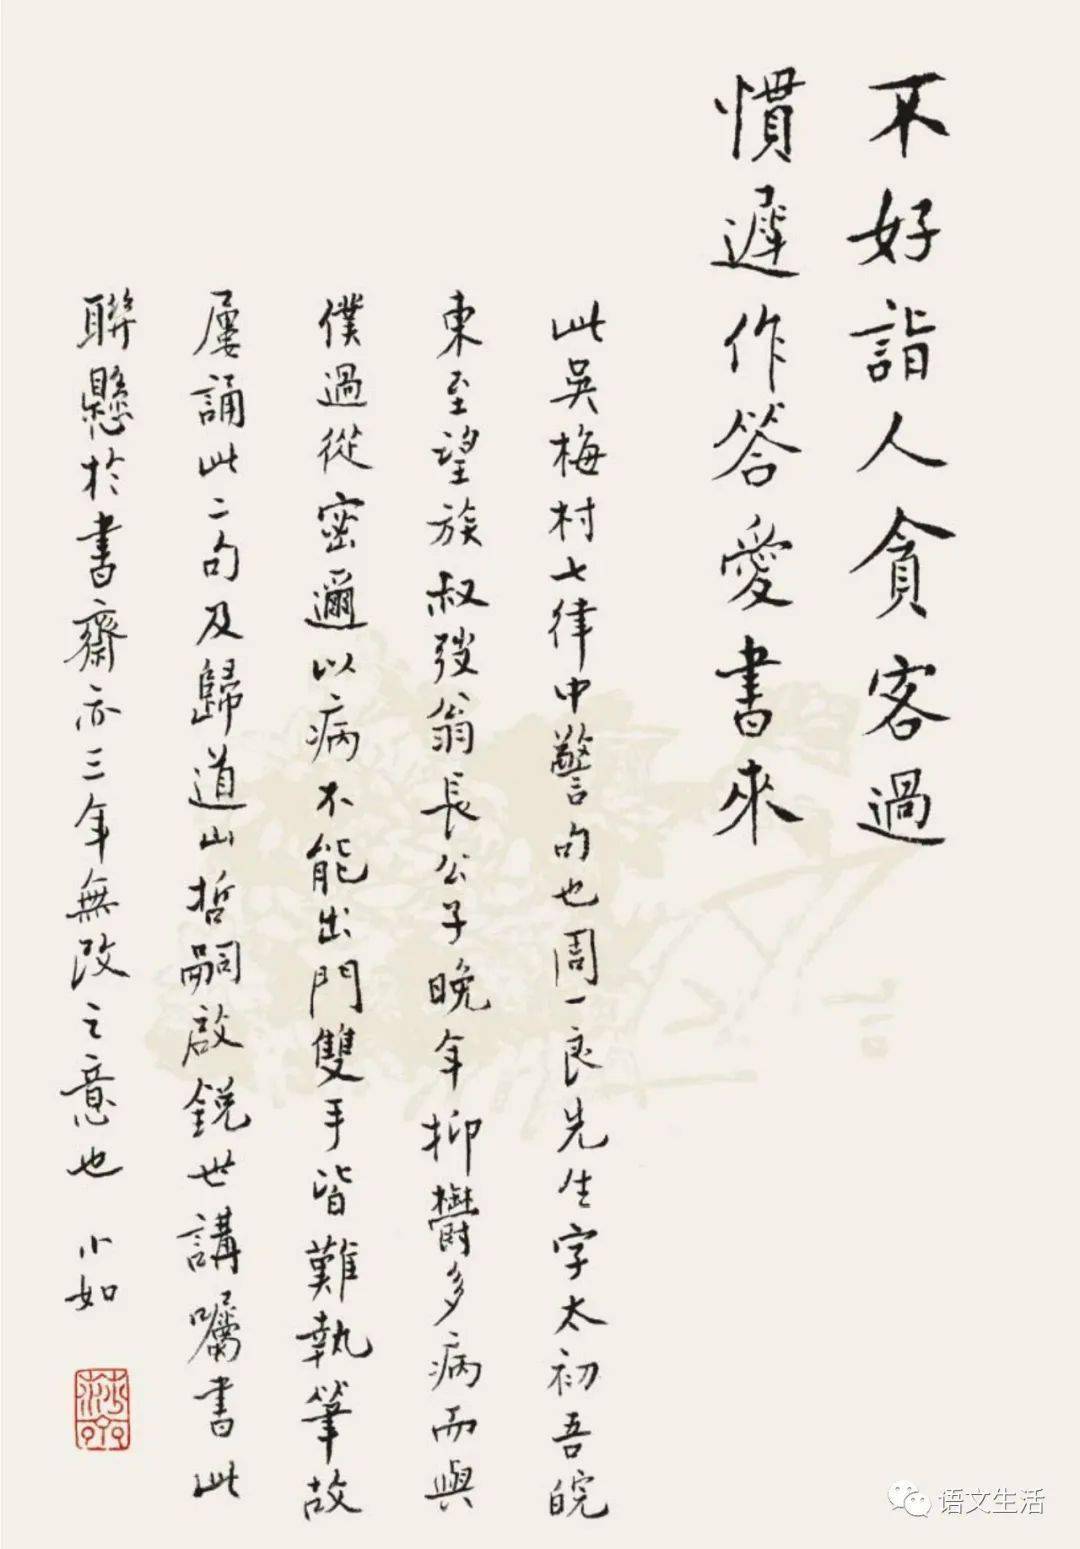 不好詣人貪客過
慣遲作答愛書來
此吳梅村七律中警句也周一良先生字太初吾皖
東至望族叔弢翁長公子晚年抑鬱多病而與
僕過從密邇以病不能出門雙手皆難執筆故
屢誦此二句及歸道山哲嗣啟銳世講囑書此
聯懸於書齋亦三年無改之意也 小如
语文生活